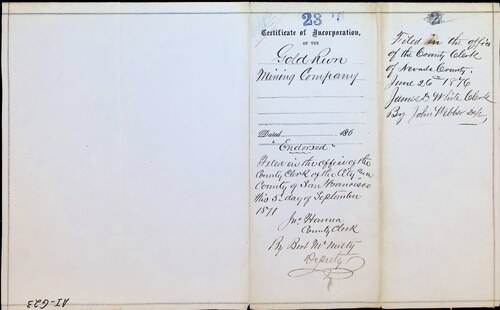 23
Certificate of Incorporation,
OF THE
Gold Run
Mining Company
Dated 186
"Endorsed"
Filed in the office of the
County Clerk of the City and
County of San Francisco
this 5th day of September
1871
Jno Hanna
County Clerk
By Bent McNulty
Deputy
2
Filed in the office
of the County Clerk
of Nevada County.
June 26th 1876
James D White Clerk
By John Webber Dep.
AI-G23